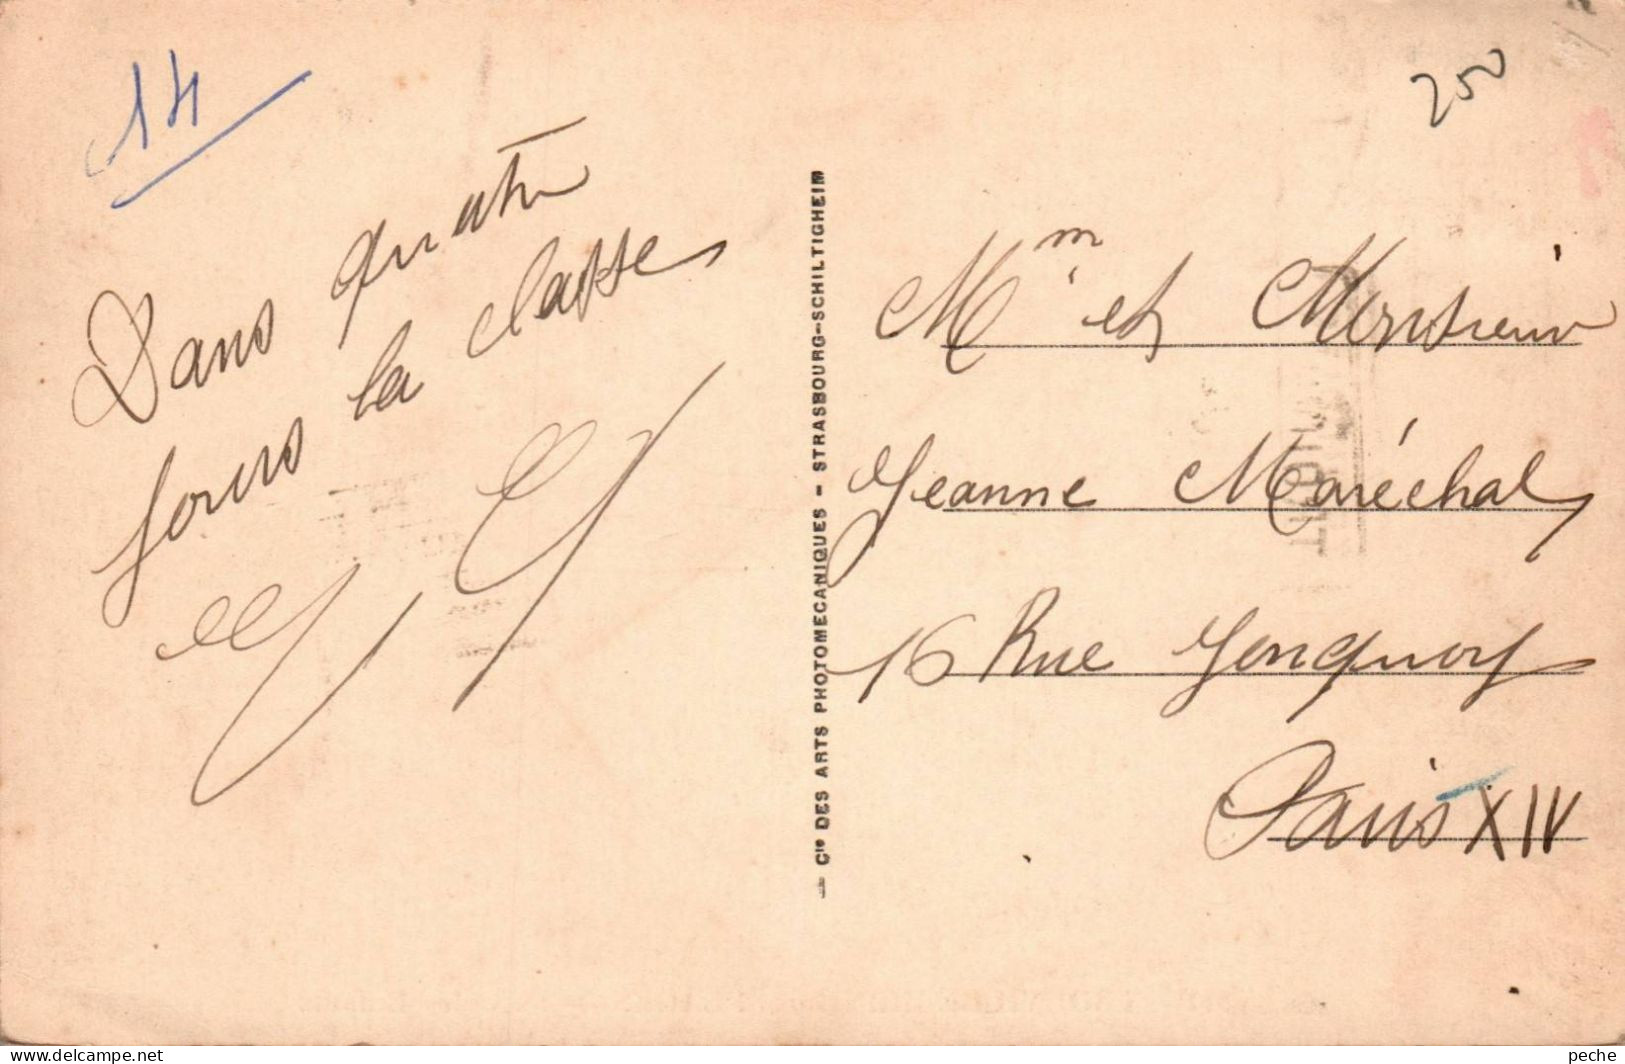 14
250
Dans quatre
jours la classe
Mm et Monsieur
Jeanne Maréchal
16 Rue Jonquoy
Paris XIV
— Cie DES ARTS PHOTOMECANIQUES - STRASBOURG-SCHILTIGHEIM
delcampe.net
peche